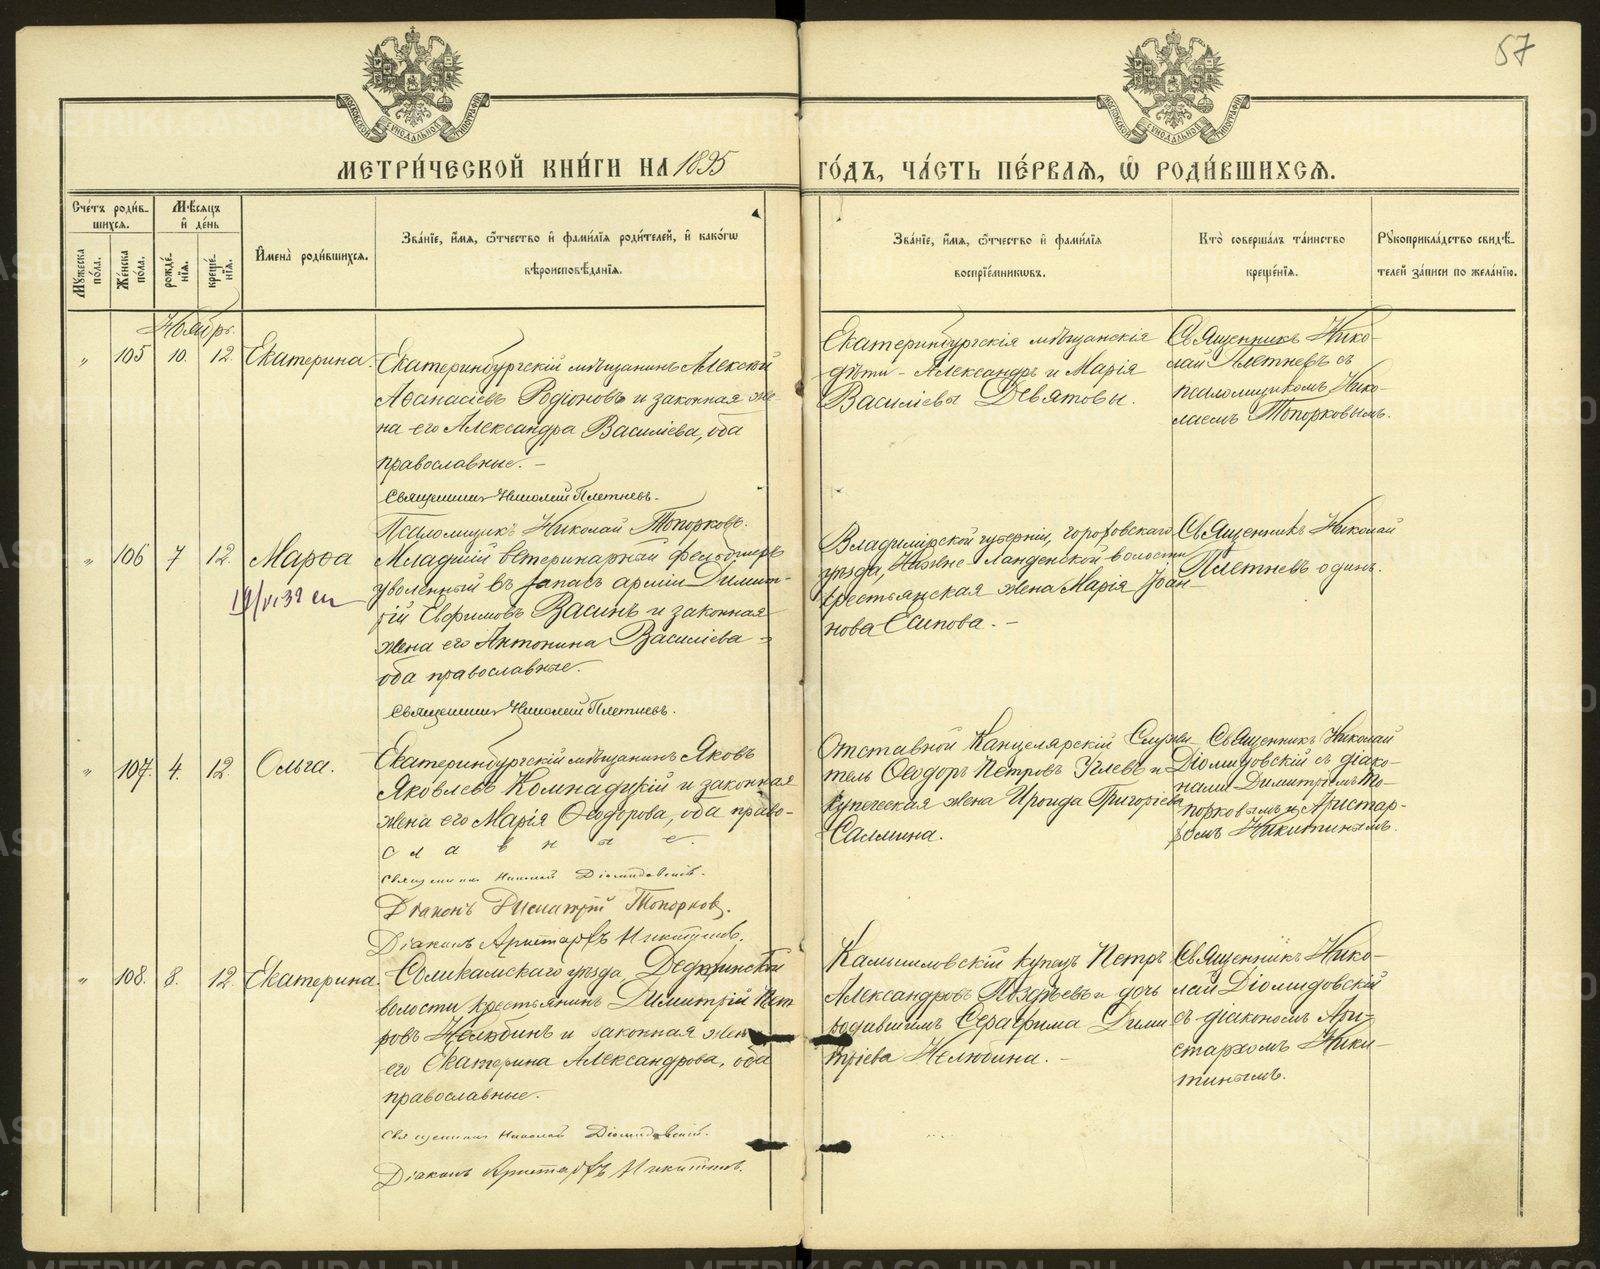 57
МОСКОВСКОЙ СУНОДАЛЬНОЙ ТИПОГРАФІИ
МОСКОВСКОЙ СУНОДАЛЬНОЙ ТИПОГРАФІИ
МЕТРИ́ЧЕСКОЙ КНИ́ГИ НА 1895 ГО́ДЪ, ЧА́СТЬ ПЕ́РВАЯ, Ѽ РОДИ́ВШИХСЯ.
Сче́тъ роди́в-
шихся.
Му́жеска
по́ла.
Же́нска
по́ла.
Мѣ́сяцъ
и҆ де́нь
рожде́-
нія.
креще́-
нія.
И҆мена̀ роди́вшихся.
Зва́ніе, и҆́мя, ѻ҆́тчество и҆ фами́лія роди́телей, и҆ како́гѡ
вѣроисповѣ́данія.
Зва́ніе, и҆́мя, ѻ҆́тчество и҆ фами́лія
воспріе́мниковъ.
Кто̀ соверша́лъ та́инство
креще́нія.
Рꙋкоприкла́дство свидѣ́-
телей за́писи по жела́нію.
Ноябрь.
„ 105 10. 12. Екатерина.
Екатеринбургскій мѣщанинъ Алексѣй
Аѳанасіевъ Родіоновъ и законная же-
на его Александра Василіева, оба
православные. –
Священникъ Николай Плетневъ.
Псаломщикъ Николай Топорковъ.
Екатеринбургскія мѣщанскія
дѣти – Александръ и Марія
Василіевы Девятовы.
Священникъ Нико-
лай Плетневъ съ
псаломщикомъ Нико-
лаемъ Топорковымъ.
„ 106 7 12. Марѳа
19/VI 32
Младшій ветеринарный фельдшеръ
уволенный въ запасъ арміи Димит-
рій Евфимовъ Васинъ и законная
жена его Антонина Василіева –
оба православные.
Священникъ Николай Плетневъ.
Владимірской губерніи, Гороховскаго
уѣзда, Нижне-Ланденской волости
крестьянская жена Марія Іоан-
нова Есипова. –
Священникъ Николай
Плетневъ одинъ.
„ 107. 4. 12. Ольга.
Екатеринбургскій мѣщанинъ Яковъ
Яковлевъ и законная
жена его Марія Ѳеодорова, оба право-
славные.
Священникъ Николай Діомидовскій.
Діаконъ Димитрій Топорковъ.
Діаконъ Аристархъ Никитинъ.
Отставной Канцелярскій Служи-
тель Ѳеодоръ Петровъ и
купеческая жена Ироида Григоріева
Салмина.
Священникъ Николай
Діомидовскій съ діако-
нами Димитріемъ То-
порковымъ и Аристар-
хомъ Никитинымъ.
„ 108. 8. 12. Екатерина.
Соликамскаго уѣзда, Дедюхинской
волости крестьянинъ Димитрій Пет-
ровъ Нелюбинъ и законная жена
его Екатерина Александрова, оба
православные.
Священникъ Николай Діомидовскій.
Діаконъ Аристархъ Никитинъ.
Камышловскій купецъ Петръ
Александровъ Поздѣевъ и дочь
родившимъ Серафима Дими-
тріева Нелюбина. –
Священникъ Нико-
лай Діомидовскій
съ діакономъ Ари-
стархомъ Ники-
тинымъ.
METRIKI.GASO-URAL.RU